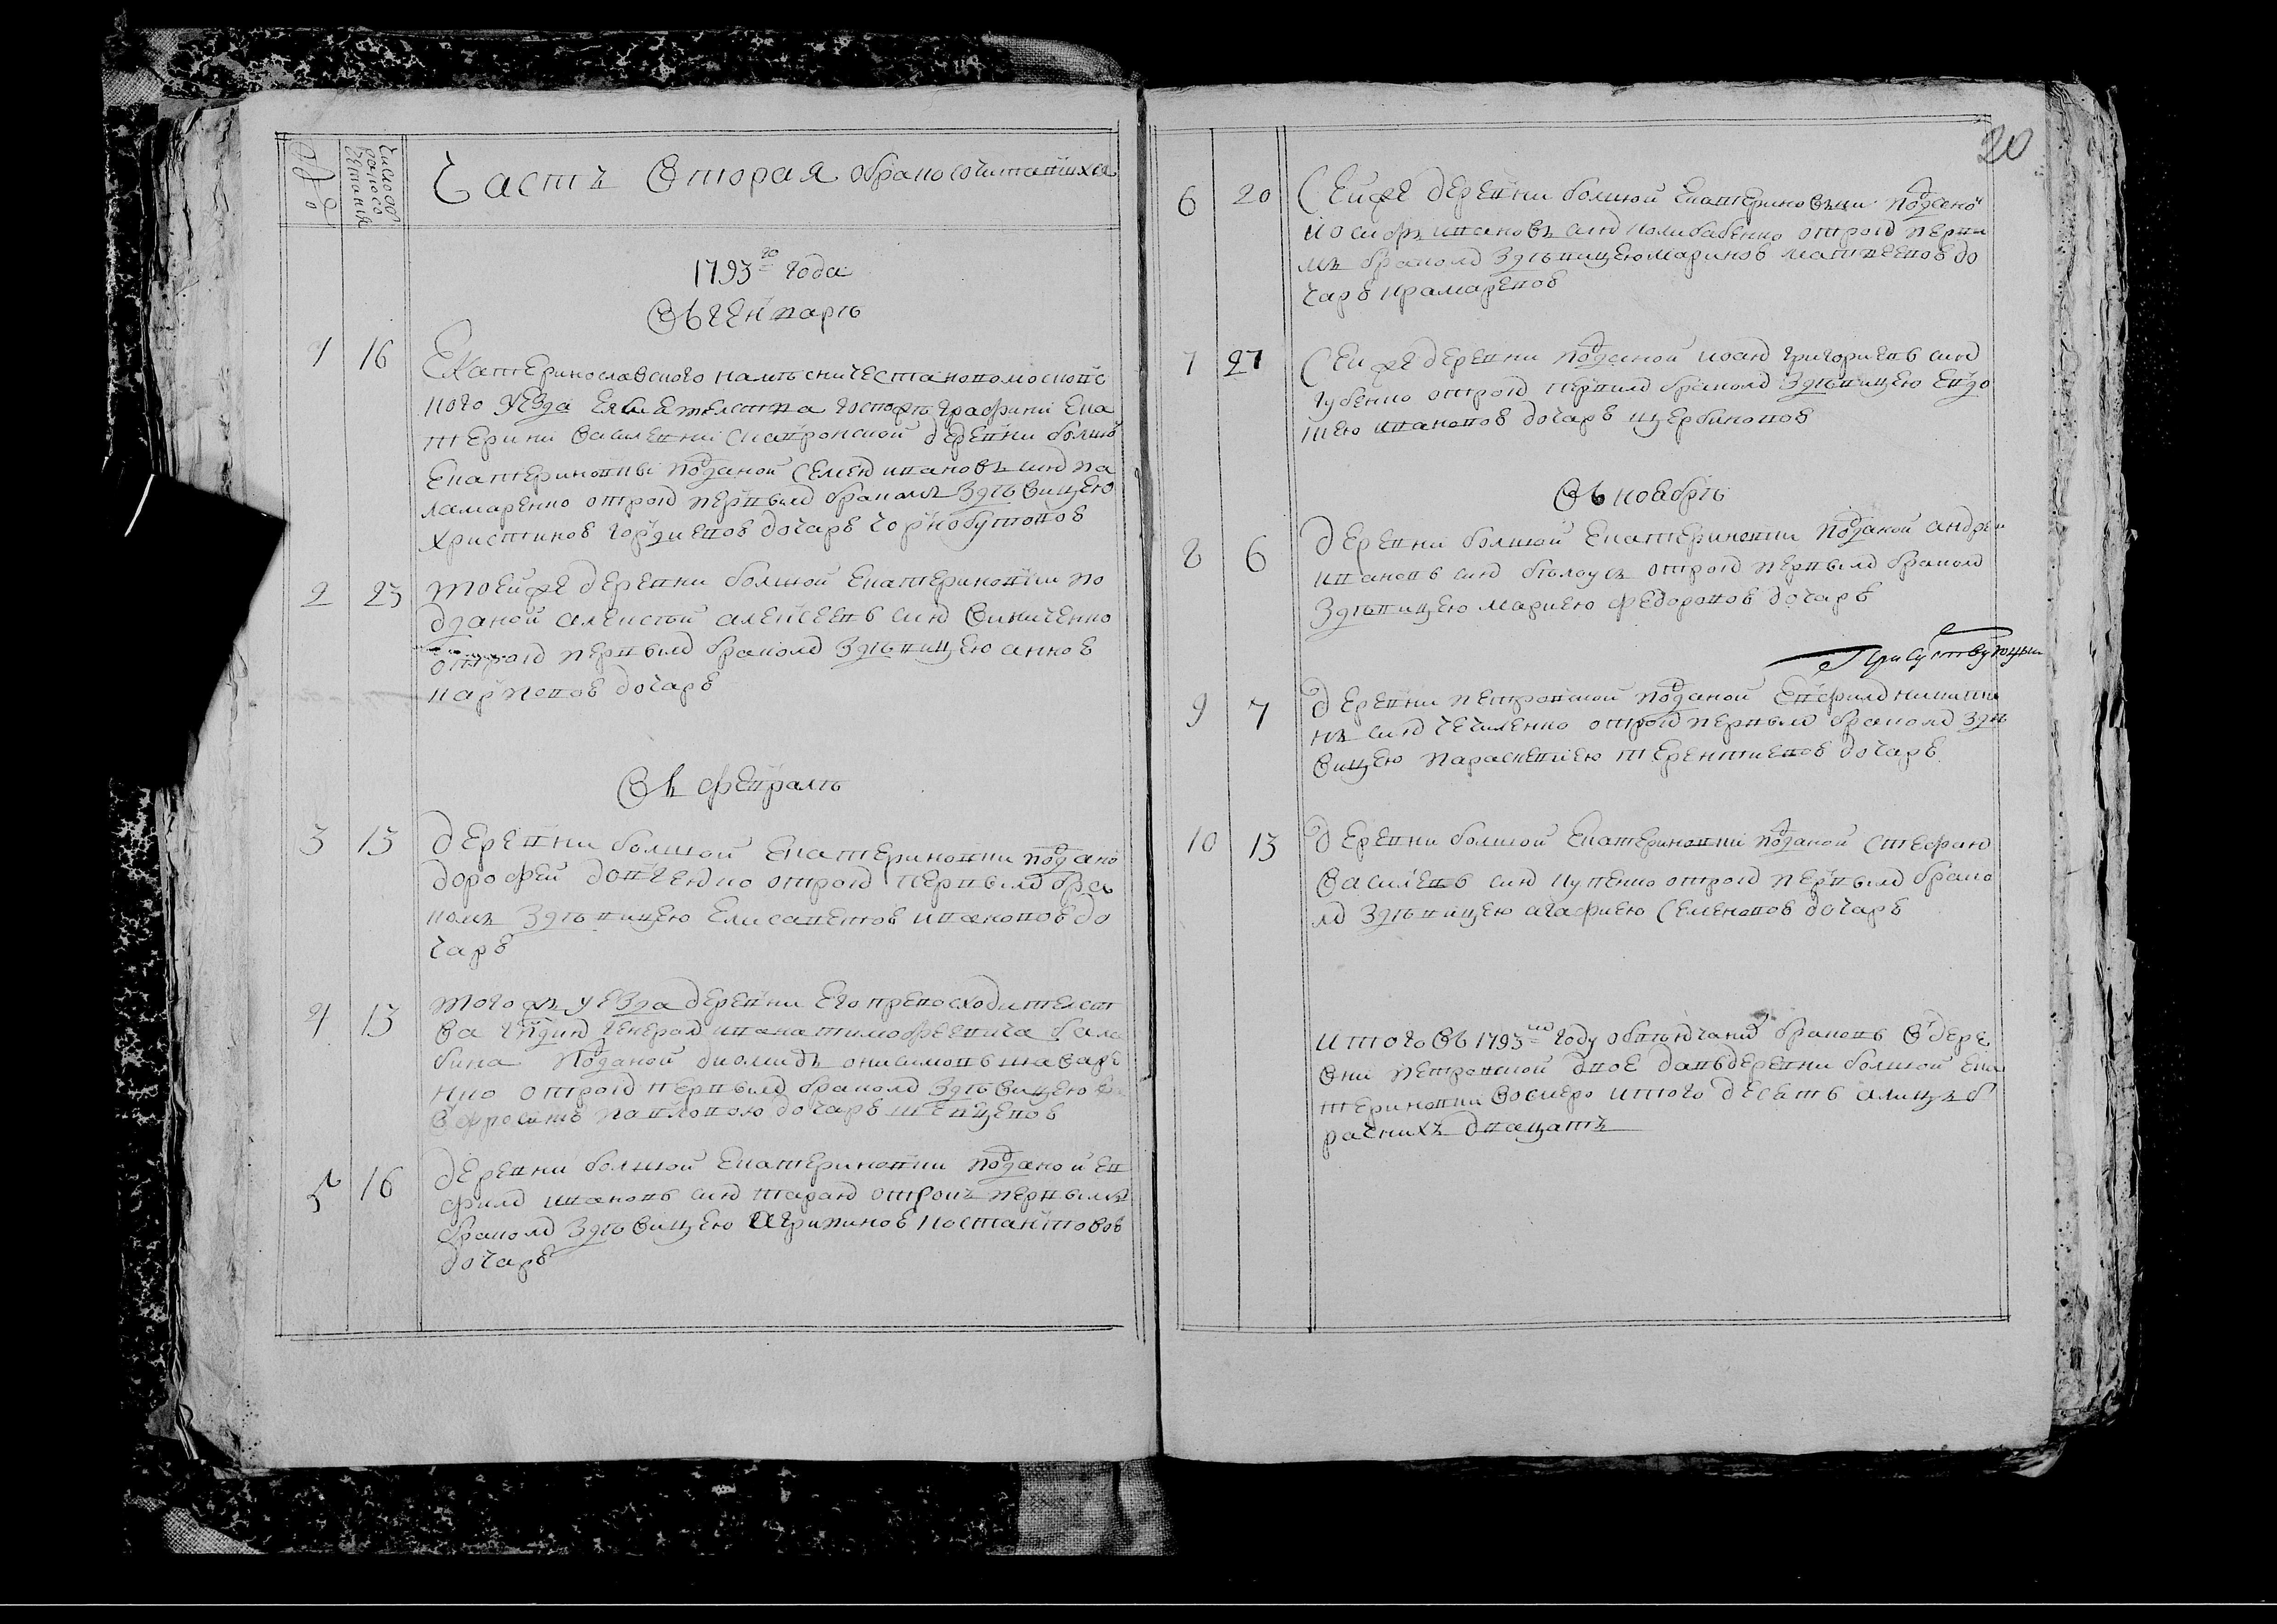 Число бракосочетания
Часть вторая о бракосочитавшихся
1793го года
Въ генварѣ
1 16 Екатеринославского намѣсничества новомосковс
кого уезда госпожѣ графини Ека
терини василевни скавронской деревни болшой
Екатериновки подданой Семенъ ивановъ синъ па
ламаренко отрокъ первымъ бракомъ здѣвицею
христиною гордиевою дочерю чорнобутовою
2 23 тоейже деревни болшой Екатериновки по
дданой алексѣй алексеевъ синъ Виниченко
отрокъ первымъ бракомъ здѣвицею анною
карповою дочерю
Въ февралѣ
3 13 деревни болшой Екатериновки поддано
дорофей довгенко отрокъ первымъ бра
комъ здѣвицею Елисаветою ивановою до
черю
4 13 тогожъ уезда деревни Его превосходителст
ва гдина генерал ивана тимофеевича
бина подданой диомидъ онисимовъ
отрокъ первымъ бракомъ здѣвицею
Ефросинею павловою дочерю шевцовою
5 16 деревни болшой Екатериновки подданой ев
фимъ ивановъ синъ таранъ отрокъ первымъ
бракомъ здѣвицею агрипиною костантиновою
дочерю
20
6 20 Сейже деревни болшой Екатериновъки поддано
иосифъ ивановъ синъ отрокъ перви
мъ бракомъ здѣвицею мариною матвеевою до
черю крамаревою
7 27 Сейже деревни подданой иоанъ григориевъ синъ
губенко отрокъ первимъ бракомъ здѣвицею Евдо
киею ивановою дочерю щербиновою
Въ ноябрѣ
8 6 деревни болшой Екатериновки подданой андрей
ивановъ синъ бѣлоусъ отрокъ первымъ бракомъ
здѣвицею мариею федоровою дочерю
Присутствующий
9 7 деревни петровской подданой Евфимъ никити
нъ синъ чечиленко отрокъ первымъ бракомъ здѣ
вицею параскевиею терентиевою дочерю
10 13 деревни болшой Екатериновки подданой стефанъ
Василевъ синъ куценко отрокъ первымъ брако
мъ здѣвицею агафиею Семеновою дочерю
итого въ 1793мъ году обвѣнчанихъ браковъ в дере
вни петровской двое давъ деревни болшой Ека
териновки восмеро итого десять алицъ б
рачнихъ двацать